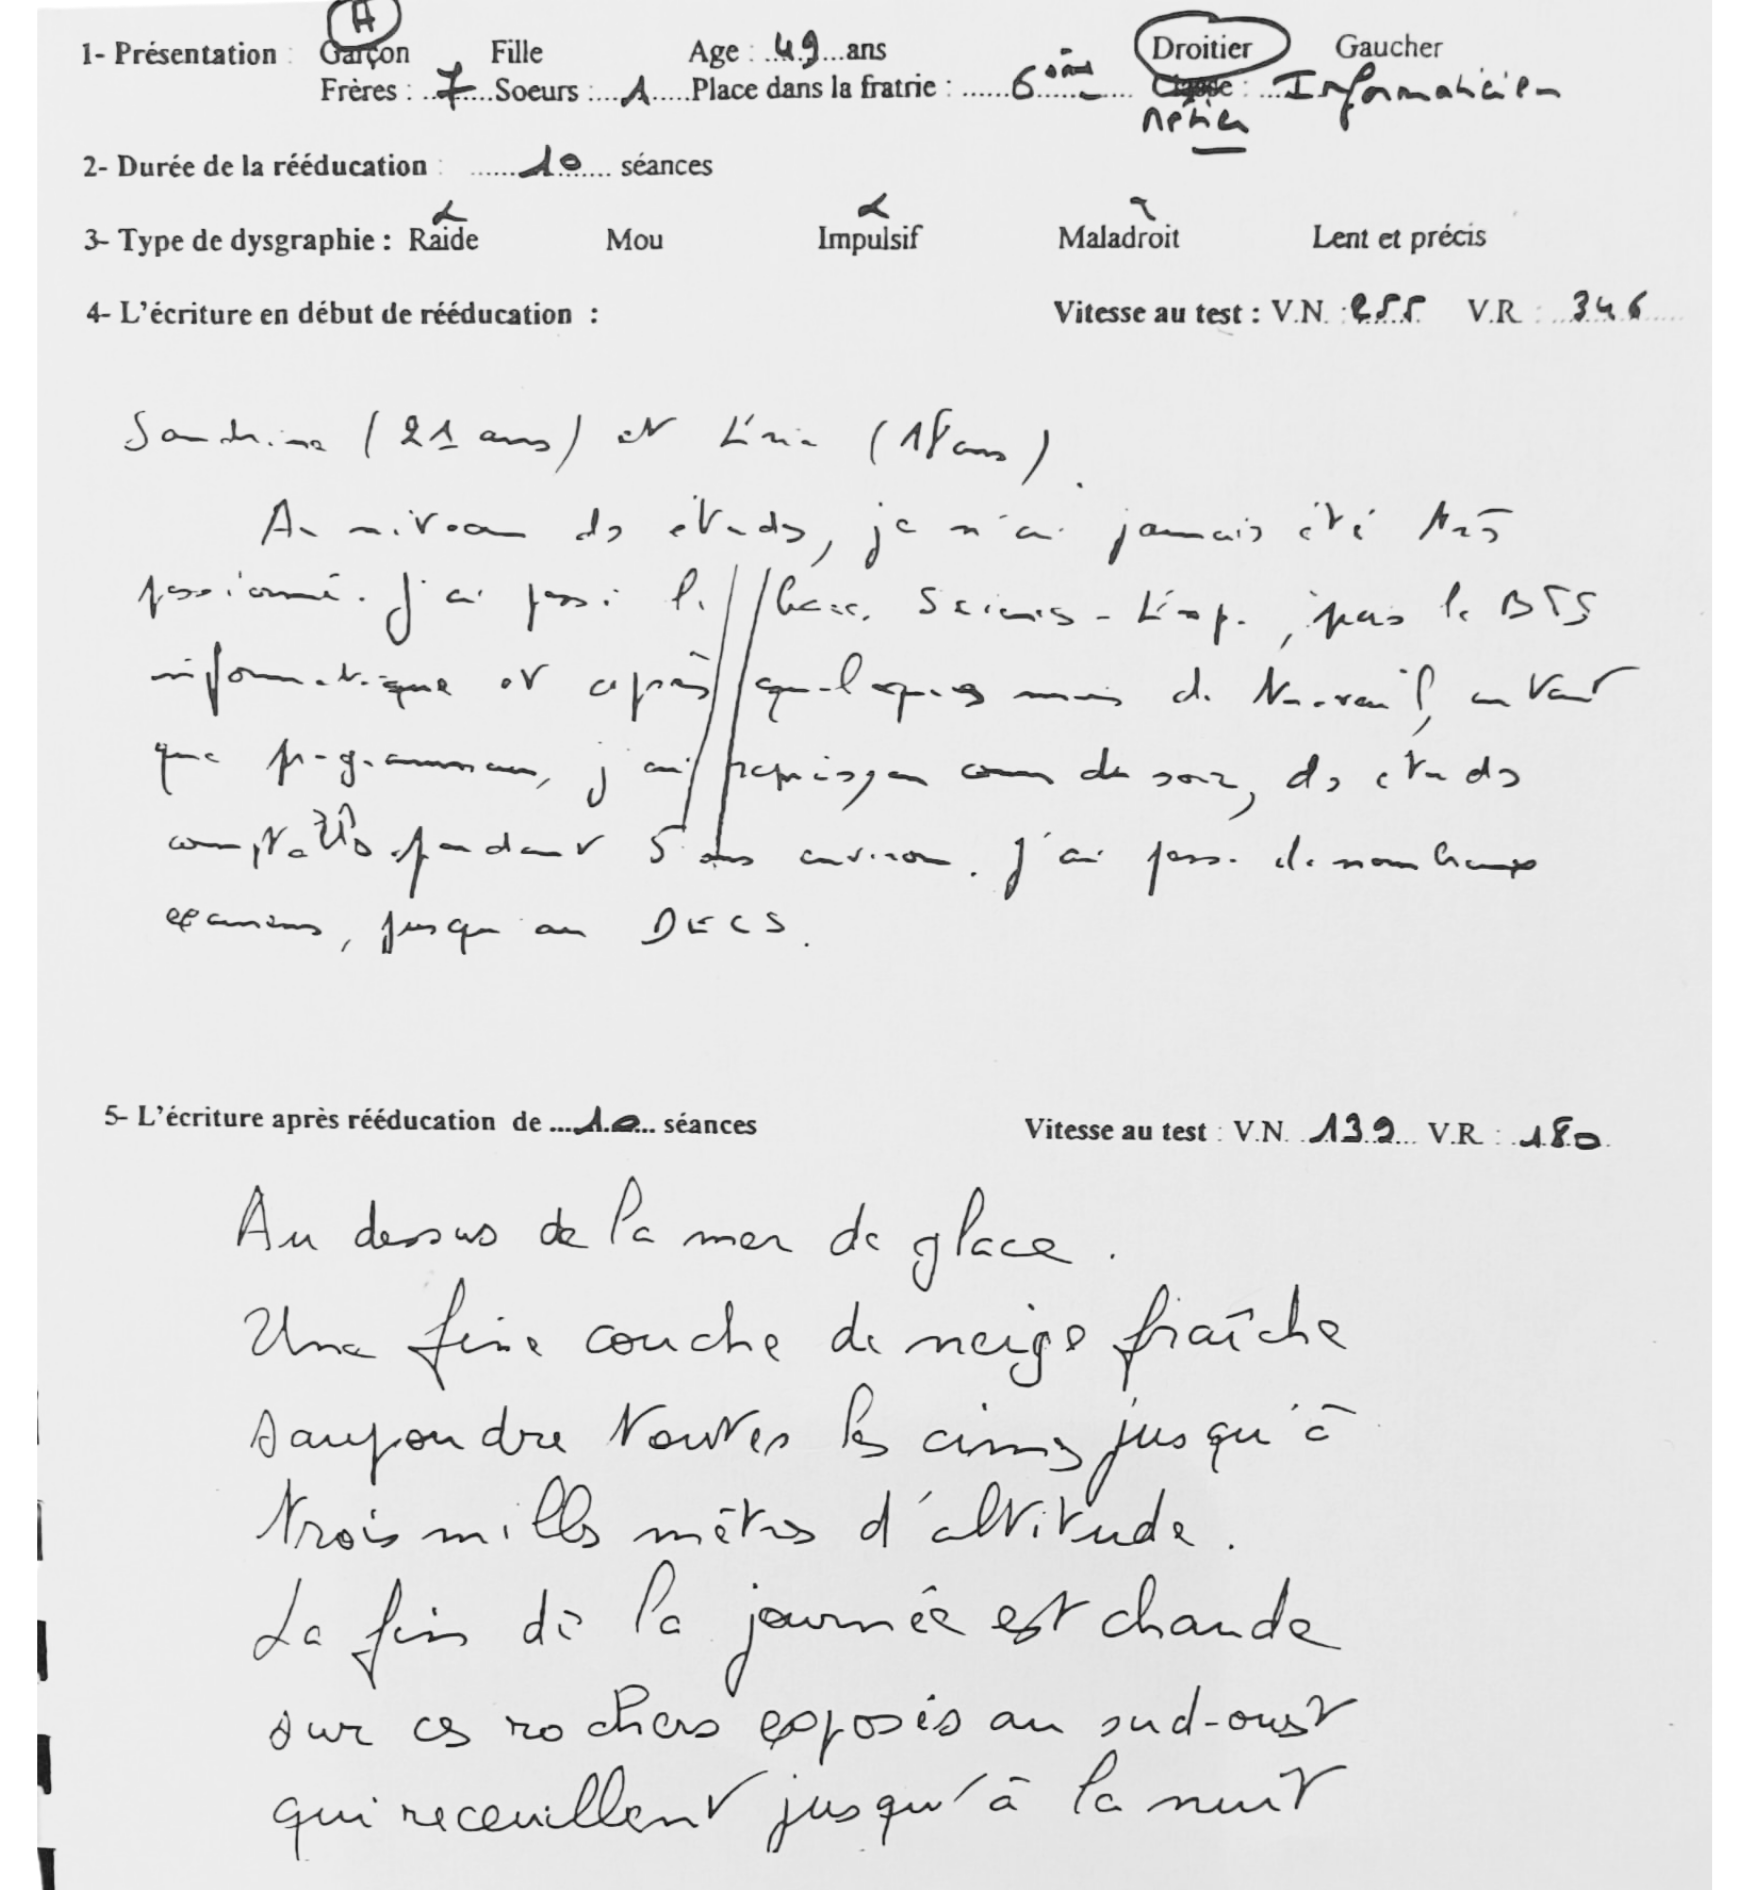 H
1- Présentation : Garçon Fille Age : 49 ans Droitier Gaucher
Frères : 7 Soeurs : 1 Place dans la fratrie : 6ème Classe : Informaticien
Métier
2- Durée de la rééducation : 10 séances
3- Type de dysgraphie : Raide Mou Impulsif Maladroit Lent et précis
4- L'écriture en début de rééducation : Vitesse au test : V.N. : 255 V.R : 346
Sandrine (21 ans) et (18 ans).
Au niveau des études, je n'ai jamais été très
passionné. J'ai passé le bacc. Sciences-Exp., puis le BTS
informatique et après quelques mois de travail, en tant
que programmeur, j'ai repris, en cours du soir, des études
comptables pendant 5 ans environ. J'ai passé de nombreux
examens, jusqu'au DECS.
5- L'écriture après rééducation de 10 séances Vitesse au test : V.N. 139 V.R : 180
Au dessus de la mer de glace.
Une fine couche de neige fraîche
saupoudre toutes les cimes jusqu'à
trois milles mètres d'altitude.
La fin de la journée est chaude
sur ces rochers exposés au sud-ouest
qui receuillent jusqu'à la nuit